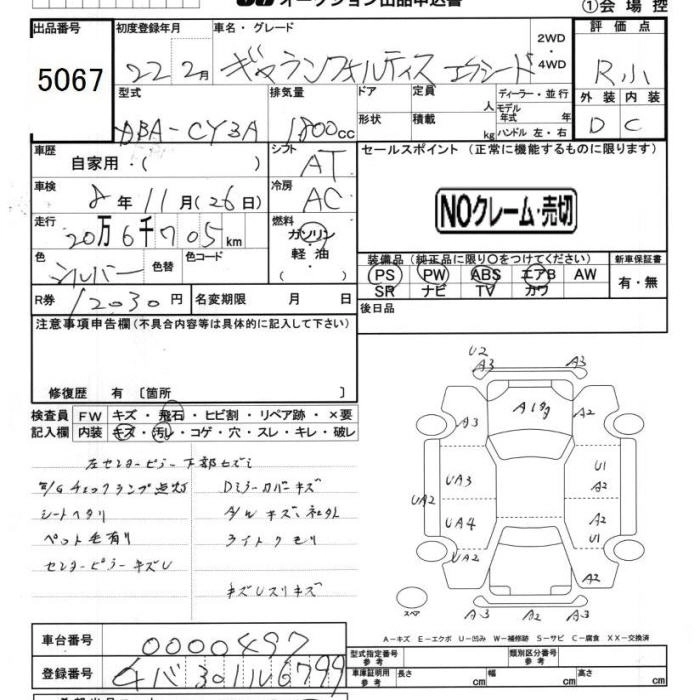 オークション出品申込書
①会場控
出品番号 初度登録年月 車名・グレード 2WD・4WD 評価点
5067 22年2月 ギャランフォルティス エクシード R小
型式 排気量 ドア 定員 人 ディーラー・並行 外装 内装
DBA-CY3A 1800cc 形状 積載 kg モデル年式 年 ハンドル 左・右 D C
車歴 自家用・( ) シフト AT セールスポイント (正常に機能するものに限ります)
車検 8年11月(26日) 冷房 AC
NOクレーム・売切
走行 20万6千705km 燃料 ガソリン・軽油
色 シルバー 色替 色コード
装備品 (純正品に限り○をつけてください) 新車保証書
PS PW ABS エアB AW 有・無
SR ナビ TV カワ
R券 12030円 名変期限 月 日
後日品
注意事項申告欄(不具合内容等は具体的に記入して下さい)
修復歴 有 〔箇所 〕
検査員 FW キズ・飛石・ヒビ割・リペア跡・×要
記入欄 内装 キズ・汚レ・コゲ・穴・スレ・キレ・破レ
左センターピラー下部ヒズミ
E/Gチェックランプ点灯 Dミラーカバーキズ
シートヘタリ A/Wキズ
ペット毛有り ライトクモリ
センターピラーキズU
キズUスリキズ
U2
A3 A3
A19g
A3 A2
UA3 U1
A2
UA2
UA4 A2
U1
UA2 A2
スペア
A3 A2 A3
A-キズ E-エクボ U-凹み W-補修跡 S-サビ C-腐食 XX-交換済
車台番号 0000497 型式指定番号 参考 類別区分番号 参考
登録番号 301 ル 6799 車庫証明用 参考 長さ cm 幅 cm 高さ cm